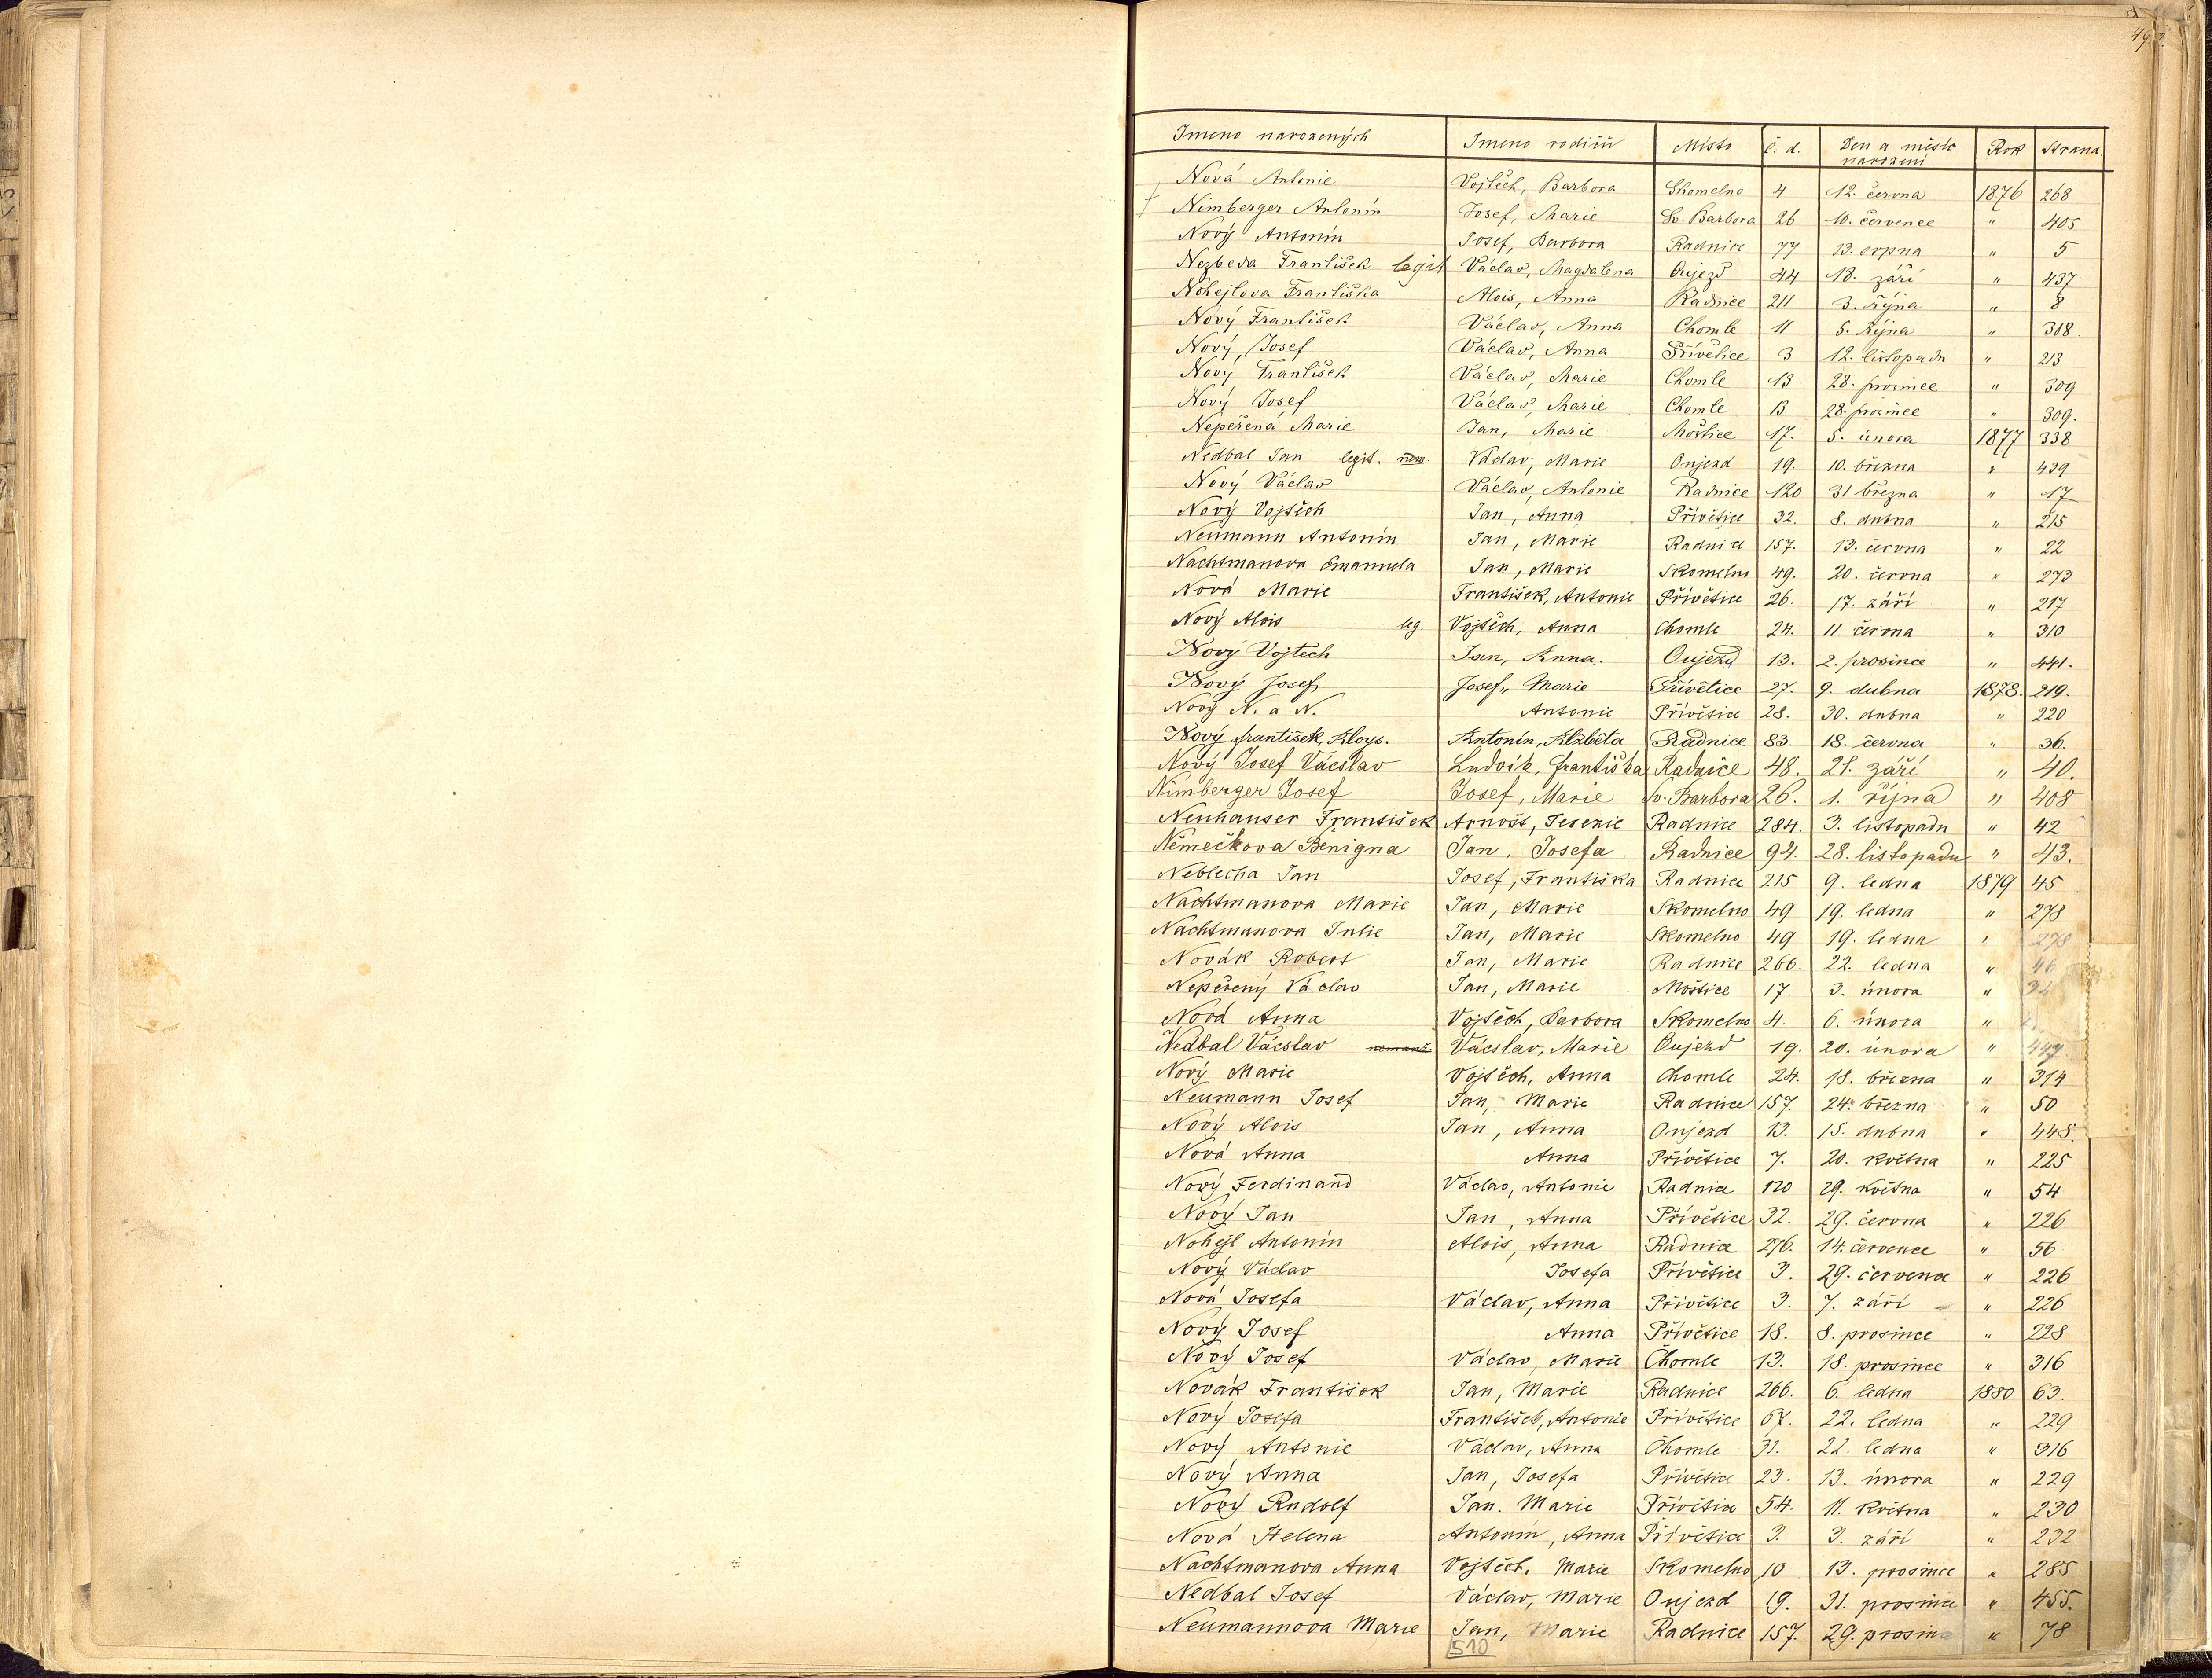 Jmeno narozených Jmeno rodičů Místo č. d. Den a měsíc narození Rok Strana.
Nová Antonie Vojtěch, Barbora Skomelno 4 12. června 1876 268
† Nimberger Antonín Josef, Marie Sv. Barbora 26 10. července " 405
Nový Antonín Josef, Barbora Radnice 77 13. srpna " 5
Nezbeda František legit Václav, Magdalena Oujezd 44 18. září " 437
Nohejlova Františka Alois, Anna Radnice 211 3. října " 8
Nový František Václav, Anna Chomle 11 5. října " 308
Nový, Josef Václav, Anna Přívětice 3 12. listopadu " 213
Nový František Václav, Marie Chomle 13 28. prosince " 309
Nový Josef Václav, Marie Chomle 13 28. prosince " 309.
Nepeřená Marie Jan, Marie Moštice 17. 5. února 1877 338
Nedbal Jan legit. nem. Václav, Marie Oujezd 19. 10. března " 439
Nový Václav Václav, Antonie Radnice 120 31 března " 17
Nový Vojtěch Jan, Anna Přívětice 32. 8. dubna " 215
Neumann Antonín Jan, Marie Radnice 157. 13. června " 22
Nachtmanova Emanuela Jan, Marie Skomelno 49. 20. června " 273
Nová Marie František, Antonie Přívětice 26. 17. září " 217
Nový Alois leg. Vojtěch, Anna Chomle 24. 11. června " 310
Nový Vojtěch Jan, Anna. Oujezd 13. 2. prosince " 441.
Nový Josef Josef, Marie Přívětice 27. 9. dubna 1878. 219.
Nový N. a N. Antonie Přívětice 28. 30. dubna " 220
Nový František, Aloys. Antonín, Alžběta Radnice 83. 18. června " 36.
Nový Josef Vácslav Ludvík, Františka Radnice 48. 21. září " 40.
Nimberger Josef Josef, Marie Sv. Barbora 26. 1. října " 408
Neuhauser František Arnošt, Terezie Radnice 284. 3. listopadu " 42
Němečkova Benigna Jan, Josefa Radnice 94. 28. listopadu " 43.
Neblecha Jan Josef, Františka Radnice 215 9. ledna 1879 45
Nachtmanova Marie Jan, Marie Skomelno 49 19. ledna " 278
Nachtmanova Julie Jan, Marie Skomelno 49 19. ledna " 278
Novák Robert Jan, Marie Radnice 266. 22. ledna " 46
Nepeřený Václav Jan, Marie Moštice 17. 3. února "
Nová Anna Vojtěch, Barbora Skomelno 4. 6. února "
Nedbal Vácslav nemanž. Vácslav, Marie Oujezd 19. 20. února " 447
Nový Marie Vojtěch, Anna Chomle 24. 18. března " 314
Neumann Josef Jan, Marie Radnice 157. 24. března " 50
Nový Alois Jan, Anna Oujezd 13. 15. dubna " 448.
Nová Anna Anna Přívětice 7. 20. května " 225
Nový Ferdinand Václav, Antonie Radnice 120 29. května " 54
Nový Jan Jan, Anna Přívětice 32. 29. června " 226
Nohejl Antonín Alois, Anna Radnice 276. 14. července " 56
Nový Václav Josefa Přívětice 3. 29. července " 226
Nová Josefa Václav, Anna Přívětice 3. 7. září " 226
Nový Josef Anna Přívětice 18. 8. prosince " 228
Nový Josef Václav, Marie Chomle 13. 18. prosince " 316
Novák František Jan, Marie Radnice 266. 6. ledna 1880 63.
Nový Josefa František, Antonie Přívětice 67. 22. ledna " 229
Nový Antonie Václav, Anna Chomle 31. 22. ledna " 316
Nový Anna Jan, Josefa Přívětice 23. 13. února " 229
Nový Rudolf Jan. Marie Přívětice 54. 11. května " 230
Nová Helena Antonín, Anna Přívětice 3. 3. září " 232
Nachtmanova Anna Vojtěch, Marie Skomelno 10 13. prosince " 285
Nedbal Josef Václav, Marie Oujezd 19. 31. prosince " 455.
Neumannova Marie Jan, Marie Radnice 157. 29. prosince " 78
510